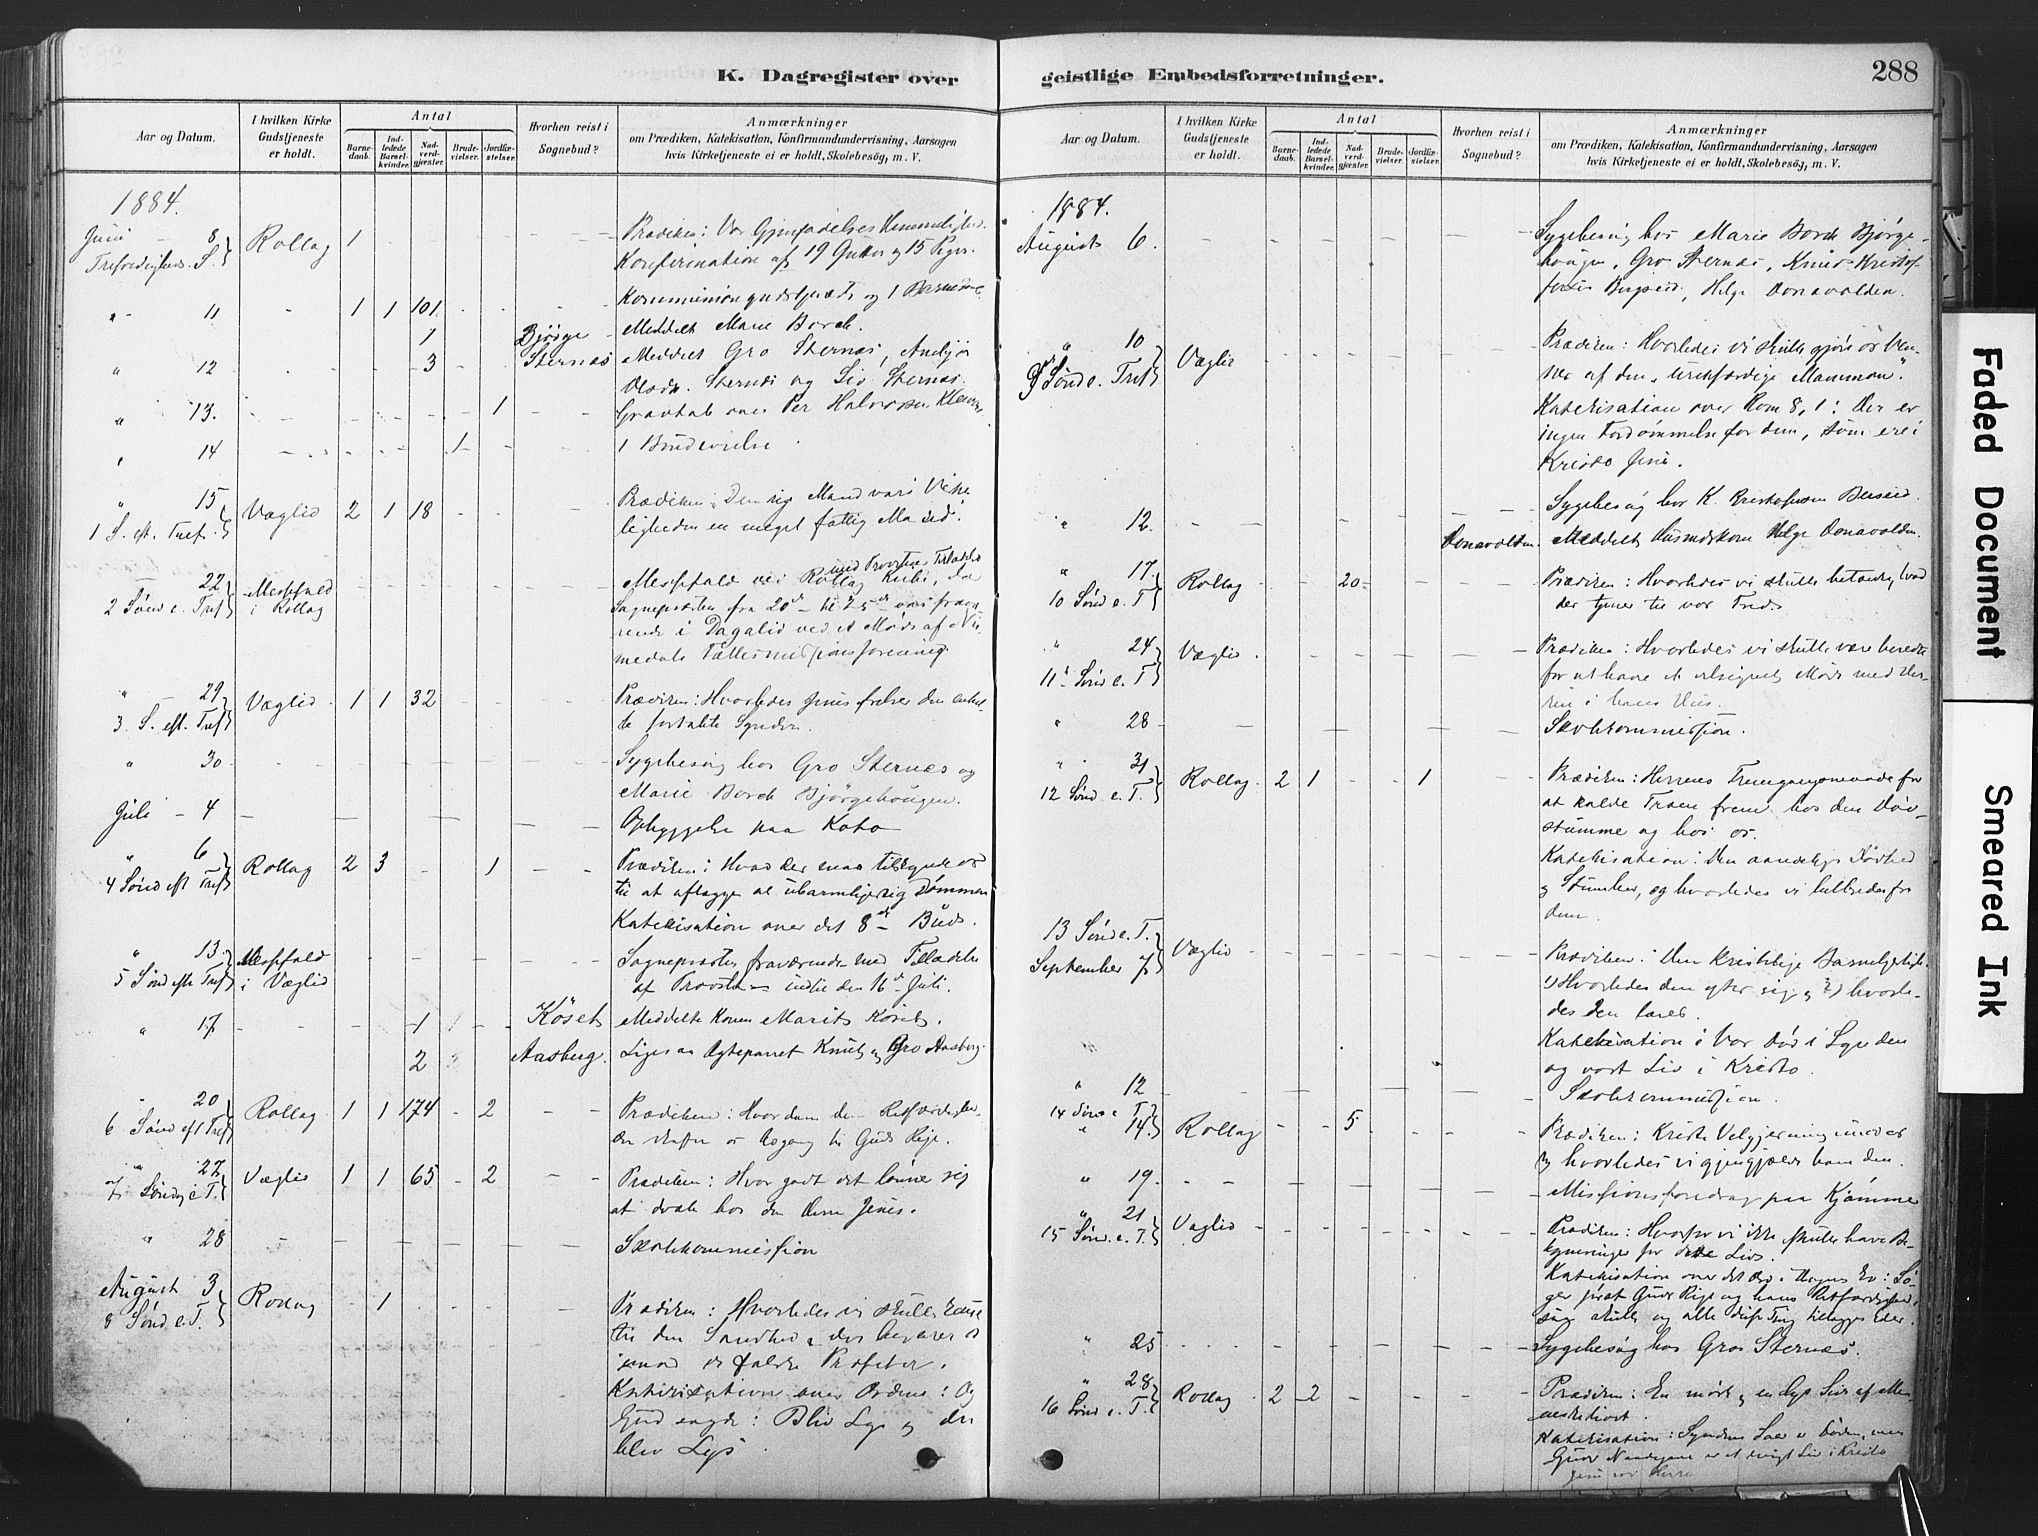 K. Dagregister over
Aar og Datum.
I hvilken Kirke Gudstjeneste er holdt.
Antal
Barnedaab.
Indledede Barselkvinder.
Nadverdgjæster.
Brudevielser.
Jordfæstelser.
Hvorhen reist i Sognebud?
Anmærkninger
om Prædiken, Katekisation, Konfirmandundervisning, Aarsagen
hvis Kirketjeneste ei er holdt, Skolebesøg, m. V.
1884.
Juni 8 Rollag 1 Prædiken: Vor Gjenfødelses Hemmelighed.
Trefoldigheds S. Konfirmation af 19 Gutter og 15 Piger.
" 11 1 1 101 Kommuniongudstjeneste og 1 Barnedaab.
1 Bjørge Meddelt Marie Borch.
" 12 3 Sternes Meddelt Gro Sternes,
Sternes og Liv Sternes.
" 13. 1 Gravtale over Per Halvorsen
" 14 1 1 Brudevielse.
" 15 Væglid 2 1 18 Prædiken: Den rige Mand var i Virke
1 S. eft. Tref. ligheden en meget fattig Mand.
" 22 Messefald Messefald ved Rollag Kirke, da
med Provstens Tilladelse
2 Sønd e. Tref i Rollag Sognepresten fra 20de til 25de var fravæ-
rende i Dagalid ved et Møde af Nu-
medals Fællesmissionsforening.
" 29 Væglid 1 1 32 Prædiken: Hvorledes Jesus frelser den enkel-
3. S. eft. Tref te fortabte Synder.
" 30 Sygebesøg hos Gro Sternes og
Marie Borch Bjørgehougen.
Juli 4 Opbyggelse paa
" 6 Rollag 2 3 1 Prædiken: Hvad der maa tilskynde os
4 Sønd eft Tref til at aflægge al ubarmhjertig Dømmen
Katekisation over det 8de Bud.
" 13. Messefald Sognepresten fraværende med Tilladelse
5 Sønd efter Tref i Væglid af Provsten indtil den 16de Juli.
" 17 1 Köset Meddelte Konen Marit Köset.
2 Aasberg. Ligesaa Ægteparret Knut og Gro Aasberg.
" 20 Rollag 1 1 174 2 Prædiken: Hvordan den Retfærdighed
6 Sønd eft Tref der skaffer os Adgang til Guds Rige.
" 27 Væglid 1 1 65 2 Prædiken: Hvor godt det lønner sig
7 Sønd e T. at dvæle hos den Herre Jesus.
" 28 Skolekommission
August 3 Rollag 1 Prædiken: Hvorledes vi skulle
8 Sønd. e. T. til den Sandhed, der bevarer os
imod de falske Profeter.
Katekisation over Ordene: Og
Gud sagde: Bliv Lys og der
blev Lys
geistlige Embedsforretninger.
288
Aar og Datum.
I hvilken Kirke Gudstjeneste er holdt.
Antal
Barnedaab.
Indledede Barselkvinder.
Nadverdgjæster.
Brudevielser.
Jordfæstelser.
Hvorhen reist i Sognebud?
Anmærkninger
om Prædiken, Katekisation, Konfirmandundervisning, Aarsagen
hvis Kirketjeneste ei er holdt, Skolebesøg, m. V.
1884.
August 6. Sygebesøg hos Marie Borch Bjørge-
hougen, Gro Sternes, Knud Kristof-
fersen Helge Donavolden.
" 10 Væglid Prædiken: Hvorledes vi skulle gjøre os Ven-
9 Sønd e. Tref ner af den uretfærdige Mammon.
Katekisation over Rom 8,1: Der er
ingen Fordømmelse for dem, som ere i
Kristo Jesu.
" 12. Sygebesøg hos K. Kristofersen
Donavolden. Meddelt Husmdskone Helge Donavolden.
" 17. Rollag 20 Prædiken: Hvorledes vi skulle betænke hvad
10 Sønd e. T der tjener til vor Fred.
" 24 Væglid. Prædiken: Hvorledes vi skulle være beredte
11 Sønd e. T for at have et velsignet Møde med Her-
ren i hans Hus.
" 28 Skolekommission.
" 31 Rollag. 2 1 1 Prædiken: Herrens Fremgangsmaade for
12 Sønd e. T. at kalde Troen frem hos den Døv-
stumme og hos os.
Katekisation: Den aandelige Døvhed
og Stumhed, og hvorledes vi helbredes for
dem.
13 Sønd e. T. Væglid Prædiken: Den Kristelige Barmhjertighed
September 7 1) Hvorledes den ytrer sig og 2) hvorle-
des den læres.
Katekisation: Vor Død i Synden
og vort Liv i Kristo.
" 12 Skolekommission.
14 Sønd e T
" 14 Rollag 5 Prædiken: Kristi Velgjerning imod os
og hvorledes vi gjengjælde ham den.
" 19. Missionsforedrag paa Kjømme
" 21 Væglid Prædiken: Hvorfor vi ikke skulle have Be-
15 Sønd. e. T. kymringer for dette Liv.
Katekisation over det Ord i Dagens Ev: Sø-
ger først Guds Rige og hans Retfærdighed,
saa skulle og alle disse Ting tillægges Eder.
" 25 Sygebesøg hos Gro Sternes.
" 28 Rollag 2 2 Prædiken: En mørk og en lys Side af Men-
16 Sønd e. T. neskelivet.
Katekisation: Syndens Sold er Døden, men
Guds Naadegave er et evigt Liv i Kristo
Jesu vor Herre
Faded Document
Smeared Ink